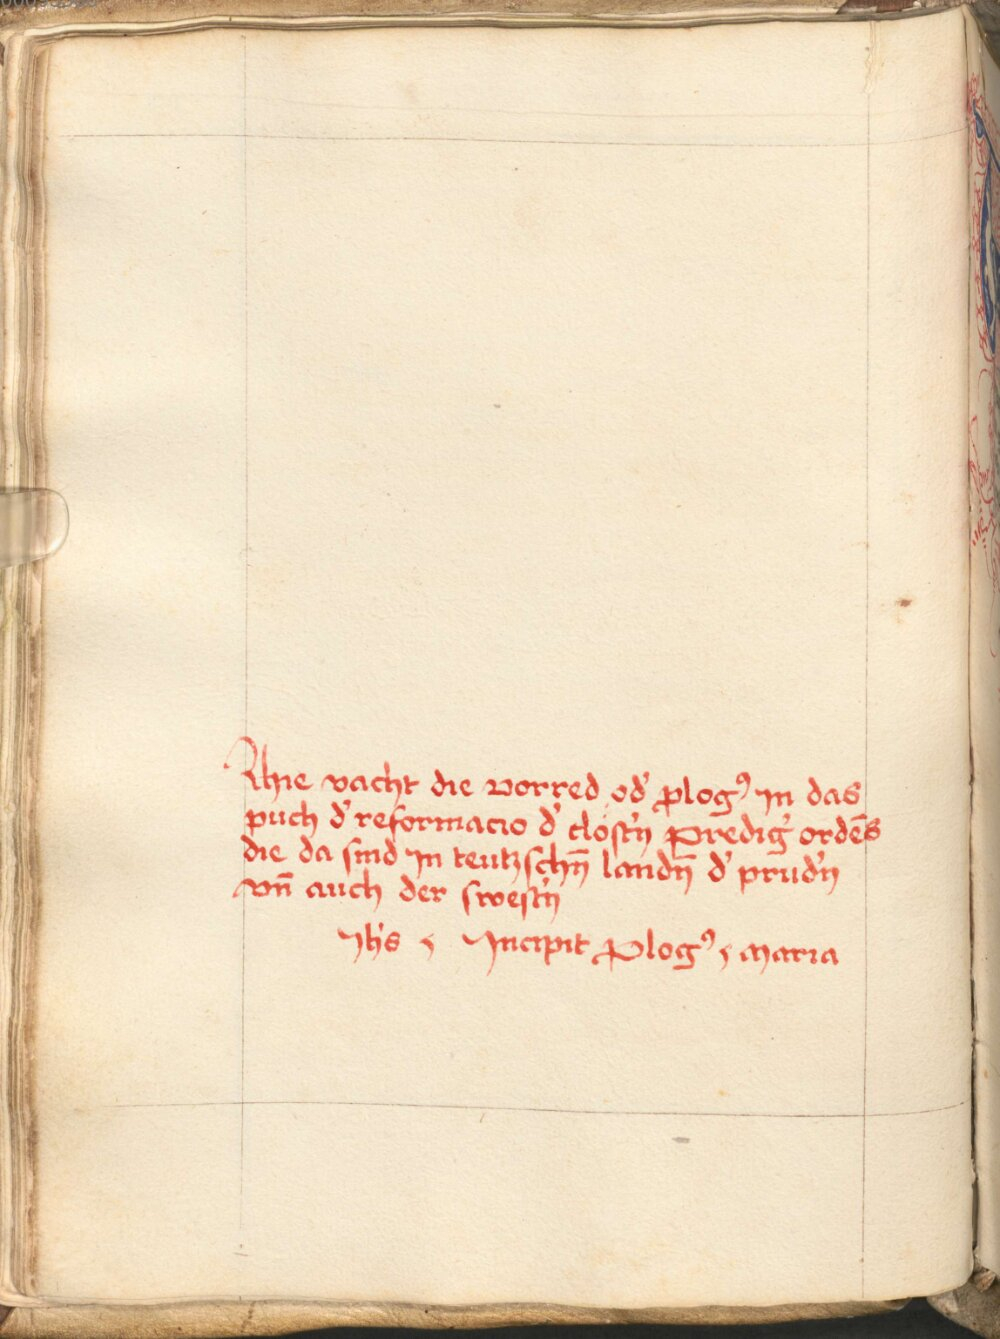 Ahie vacht die vorred od' plog⁹ jn das
puch d' reformacio d' clöst'n̄ Predig' ordēs
die da sind jn teutzschn̄ landn̄ d' prud'n̄
vn̄ auch der swest'n̄
Jh's , Jncipit Plog⁹ , maria